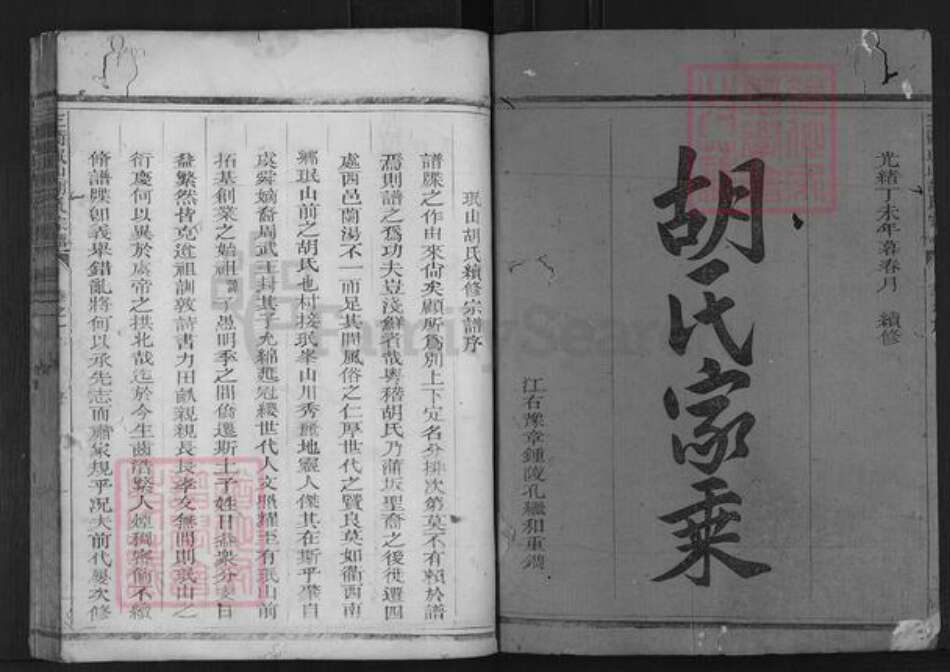 光緒丁未年暮春月 續修
胡氏家乘
江右豫章鍾陵孔繼和重鐫
珉山胡氏續修宗譜序
譜牒之作由來尚矣顧所為別上下定名分排次第莫不有賴於譜
焉則譜之為功夫豈淺鮮者哉粵稽胡氏乃蒲坂聖裔之後徙遷四
處西邑蘭湯不一而足其間風俗之仁厚世代之賢良莫如衢西南
鄉珉山前之胡氏也村接珉峯山川秀毓地靈人傑其在斯乎帶自
虞舜嫡裔周武王封其子允綿
冠纓世代人文熙耀至有珉山前
拓基創業之始祖
子愚明季之間僑遷斯土子姓日益衆分支日
益繁然皆克遵祖訓敦詩書力田畝親親長長孝友無間則珉山之
衍慶何以異於虞帝之拱北哉迄於今生齒浩繁人煙稠密倘不續
脩譜牒卽義舉錯亂將何以承先志而肅家規乎況夫前代屢次修
FamilySearch